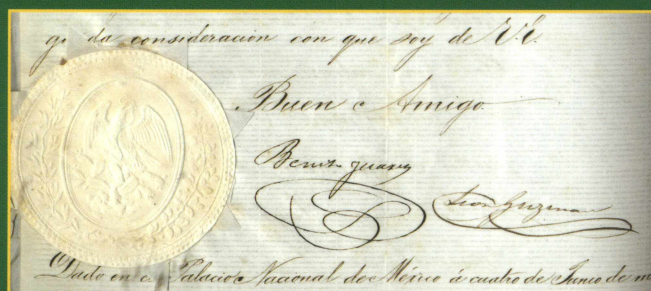 da consideración con que soy de V.E.
Buen Amigo
Benito Juarez
Leon Guzman
Dado en el Palacio Nacional de México á cuatro de Junio de m